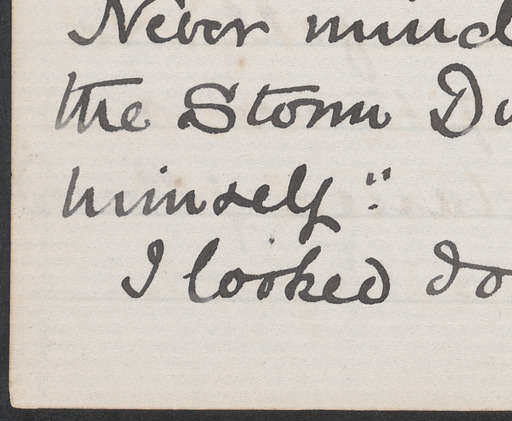 Never mind
the Storm Du
himself."
I looked do